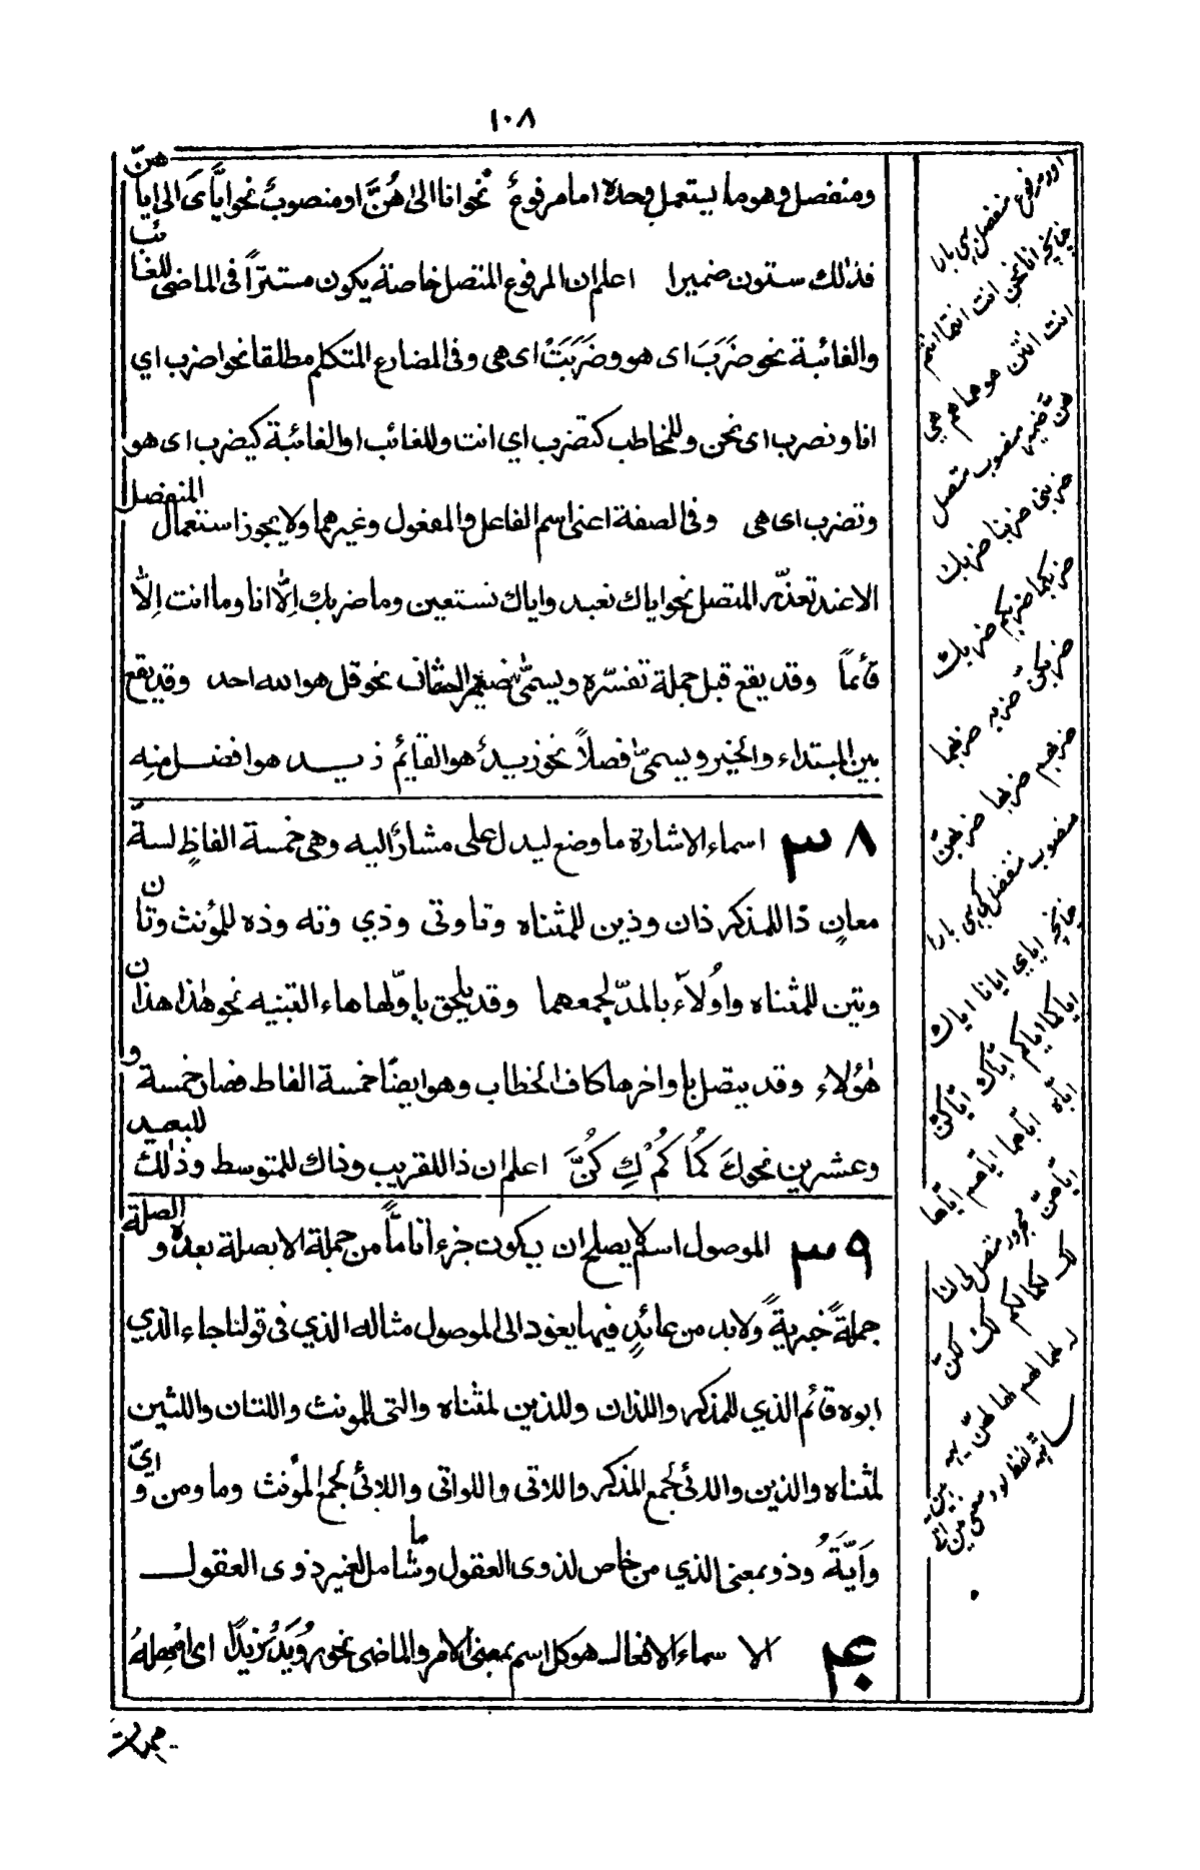 ١٠٨
ومنفصل وهو ما يستعمل وحده اما مرفوع نحو انا الىٰ هُنَّ او منصوبٌ نحو ايَّاىَ الى اياهنّ
فذٰلك ستون ضميرا اعلم ان المرفوع المتصل خاصة يكون مستتراً فى الماضى للغائب
والغائبة نحو ضَرَبَ اى هو وضَرَبَتْ اى هى وفى المضارع المتكلم مطلقا نحو اضرب اي
انا ونضرب اى نحن وللمخاطب كتضرب اي انت وللغائب او الغائبة كيضرب اى هو
وتضرب اى هى وفى الصفة اعنى اسم الفاعل والمفعول وغيرهما ولا يجوز استعمال المنفصل
الا عند تعذّر المتصل نحو اياك نعبد واياك نستعين وما ضربك اِلّا انا وما انت اِلّا
قائماً وقد يقع قبل جملة تفسّره ويسمّىٰ ضمير الشان نحو قل هو الله احد وقد يقع
بين المبتداء والخبر ويسمىّ فصلاً نحو زيدٌ هو القايمُ زيد هو افضل منه
٣٨ اسماء الاشارة ما وضع ليدل على مشارٌ اليه وهى خمسة الفاظٍ لستة
معانٍ ذا للمذكر ذان وذين للمثناه وتا وتى وذي وته وذه للمؤنث وتان
وتين للمثناه واُولاۤء بالمدّ لجمعهما وقد يلحق باوّلها هاء التنبيه نحو هٰذا هذان
هٰؤلاء وقد يتصل باواخرها كاف الخطاب وهو ايضًا خمسة الفاط فصار خمسة و
وعشرين نحو كَ كُمَا كُمْ كِ كُنَّ اعلم ان ذا للقريب وذاك للمتوسط وذٰلك للبعيد
٣٩ الموصول اسم لا يصلح ان يكون جزءاً تاماًّ من جملة الا بصلة بعده و الصلة
جملةً خبريةً ولا بد من عائدٍ فيها يعود الى الموصول مثاله الذي فى قولنا جاء الذي
ابوه قائم الذي للمذكر واللذان وللذين لمثناه والتى للمونث واللتان واللتين
لمثناه والذين والدئ لجمع المذكر واللاتى واللواتى واللائى لجمع المؤنث وما ومن و اىّ
وَايَّةُ وذو بمعنى الذي من خاص لذوى العقول وما شامل لغير ذوى العقول
٤٠ الا سماء الافعال هو كل اسم بمعنى الامر والماضى نحو رُوَيْدَ زيدًا اى امْهِلهُ
اور مرفوع منفصل كي باره
چنانچه انا نحن انت انتما انتم
انت انتن هو هما هم هي
هن ضمير منصوب متصل
ضربنى ضربنا ضربك
ضربكما ضربكم ضربك
ضربكن ضربه ضربهما
ضربهم ضربها ضربهن
منصوب منفصل كي باره
چنانچه اياي ايانا اياك
اياكما اياكم اياك اياكن
اياه اياهما اياهم اياها
اياهن مجرور متصل لى لنا
لك لكما لكم لك لكن
له لهما لهم لها لهن يه